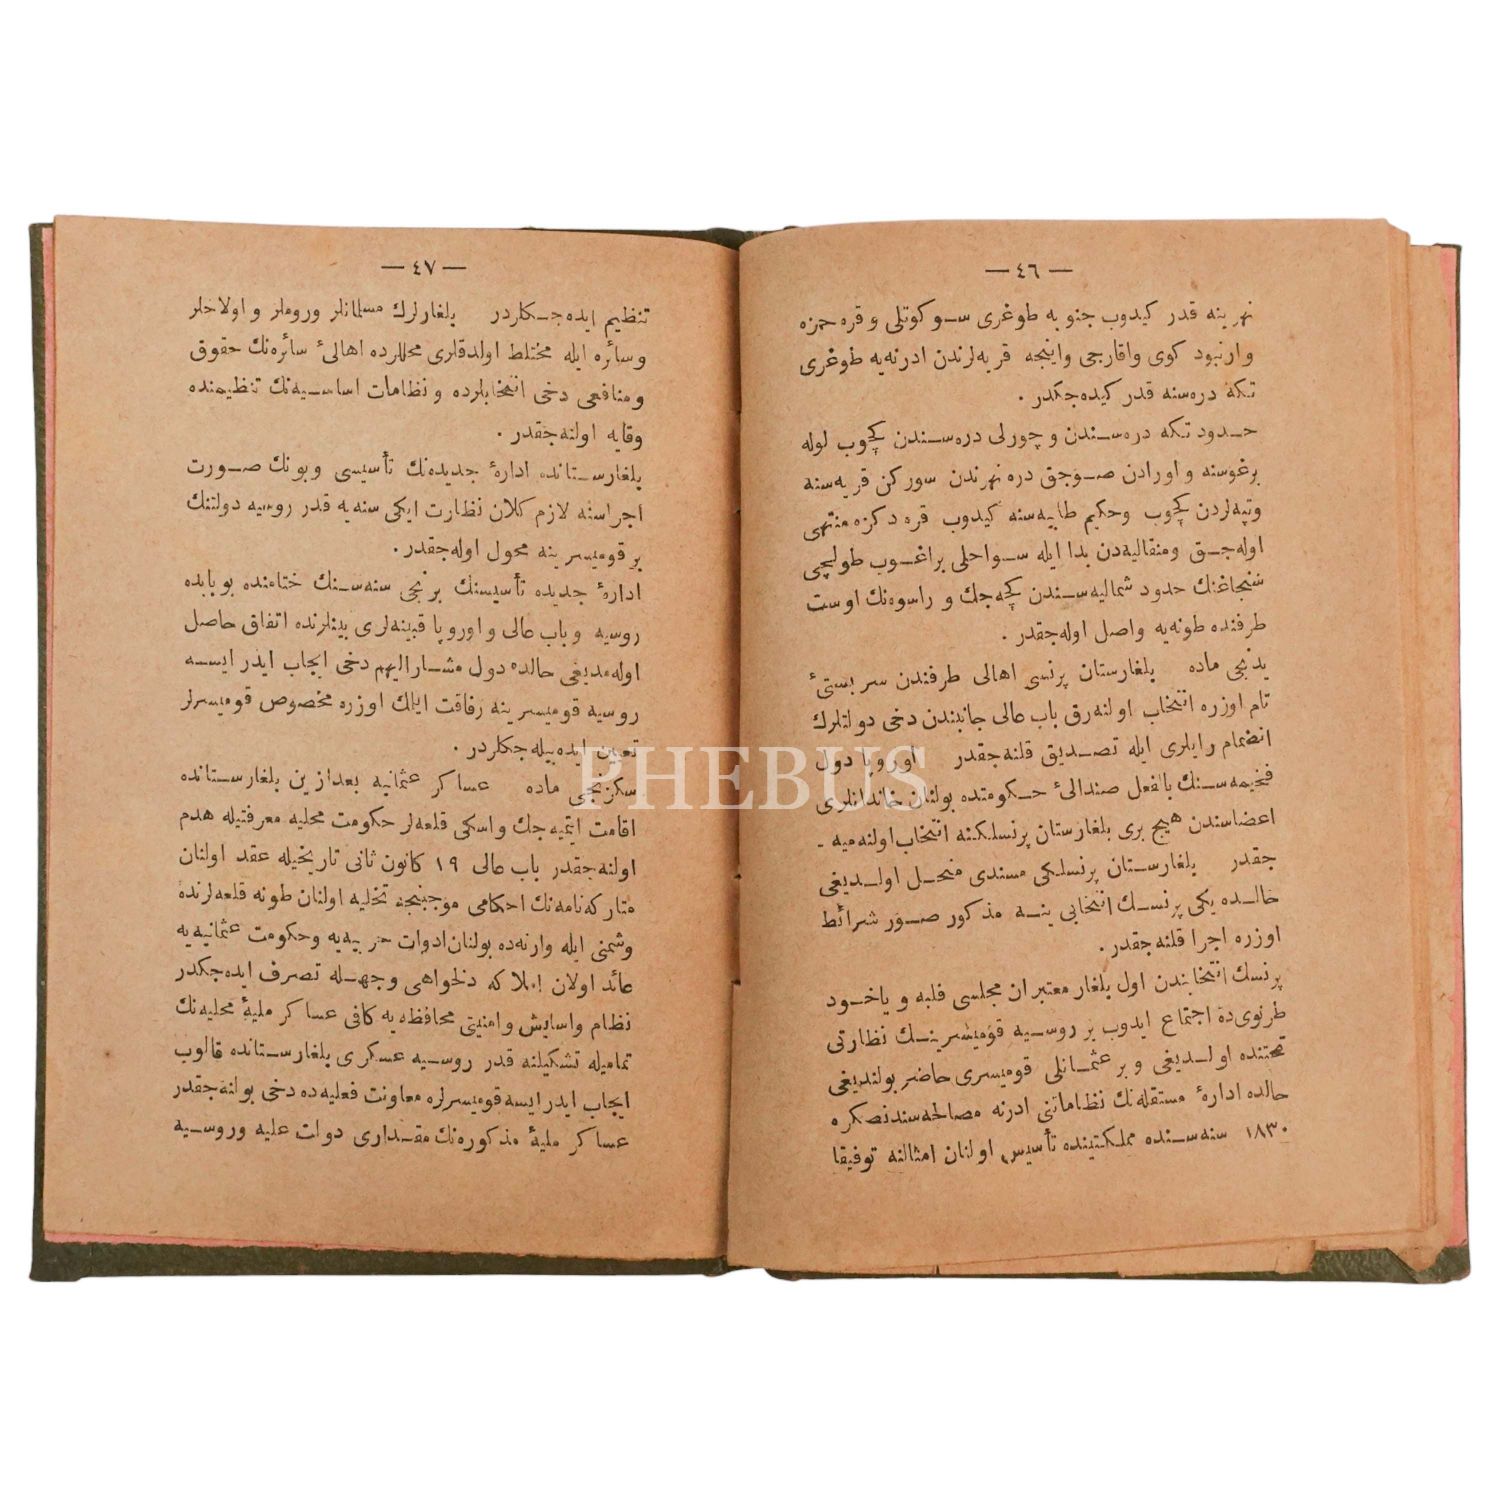 — ٤٦ —
نهرینه قدر كیدوب جنوبه طوغری سوكوتلی و قره حمزه
و ارنبود كوی و اقارجی و اینجه قریه‌لرندن ادرنه‌یه طوغری
تكه دره‌سنه قدر كیده‌جكدر .
حدود تكه دره‌سندن و چورلی دره‌سندن كچوب لوله
برغوسنه و اورادن صوجق دره نهرندن سوركن قریه‌سنه
وتپه‌لردن كچوب وحكیم طابیه‌سنه كیدوب قره دكزه منتهی
اوله‌جق ومنقالیه‌دن بدا ایله سواحلی براغوب طولچی
سنجاغنك حدود شمالیه‌سندن كچه‌جك و راسوه‌نك اوست
طرفنده طونه‌یه واصل اوله‌جقدر .
یدنجی ماده بلغارستان پرنسی اهالی طرفندن سربستیٔ
تام اوزره انتخاب اولنه‌رق باب عالی جانبندن دخی دولتلرك
انضمام رایلری ایله تصدیق قلنه‌جقدر اوروپا دول
فخیمه‌سنك بالفعل صندالیٔ حكومتده بولنان خاندانلری
اعضاسندن هیچ بری بلغارستان پرنسلكنه انتخاب اولنه‌میه -
جقدر بلغارستان پرنسلكی مسندی منحل اولدیغی
حالده یكی پرنسك انتخابی ینه مذكور صور شرائط
اوزره اجرا قلنه‌جقدر .
پرنسك انتخابندن اول بلغار معتبران مجلسی فلبه و یاخود
طرنوی‌ده اجتماع ایدوب بر روسیه قومیسرینك نظارتی
تحتنده اولدیغی و بر عثمانلی قومیسری حاضر بولندیغی
حالده ادارهٔ مستقله‌نك نظاماتنی ادرنه مصالحه‌سندنصكره
١٨٣٠ سنه‌سنده مملكتینده تأسیس اولنان امثالنه توفیقا
— ٤٧ —
تنظیم ایده‌جكلردر بلغارلرك مسلمانلر وروملر و اولاحلر
وسائره ایله مختلط اولدقلری محللرده اهالیٔ سائره‌نك حقوق
ومنافعی دخی انتخابلرده و نظامات اساسیه‌نك تنظیمنده
وقایه اولنه‌جقدر .
بلغارستانده ادارهٔ جدیده‌نك تأسیسی وبونك صورت
اجراسنه لازم كلان نظارت ایكی سنه‌یه قدر روسیه دولتنك
بر قومیسرینه محول اوله‌جقدر .
ادارهٔ جدیده تأسیسنك برنجی سنه‌سنك ختامنده بوبابده
روسیه و باب عالی و اوروپا قبینه‌لری بینلرنده اتفاق حاصل
اوله‌مدیغی حالده دول مشارالیهم دخی ایجاب ایدر ایسه
روسیه قومیسرینه رفاقت ایلك اوزره مخصوص قومیسرلر
تعیین ایده‌بیله‌جكلردر .
سكزنجی ماده عساكر عثمانیه بعدازین بلغارستانده
اقامت ایتمیه‌جك واسكی قلعه‌لر حكومت محلیه معرفتیله هدم
اولنه‌جقدر باب عالی ١٩ كانون ثانی تاریخیله عقد اولنان
متاركه‌نامه‌نك احكامی موجبنجه تخلیه اولنان طونه قلعه‌لرنده
وشمنی ایله وارنه‌ده بولنان ادوات حربیه‌یه وحكومت عثمانیه‌یه
عائد اولان املاكه دلخواهی وجهله تصرف ایده‌جكدر
نظام واسایش وامنیتی محافظه‌یه كافی عساكر ملیهٔ محلیه‌نك
تمامیله تشكیلنه قدر روسیه عسكری بلغارستانده قالوب
ایجاب ایدر ایسه قومیسرلره معاونت فعلیه‌ده دخی بولنه‌جقدر
عساكر ملیهٔ مذكوره‌نك مقداری دولت علیه وروسیه
PHEBUS